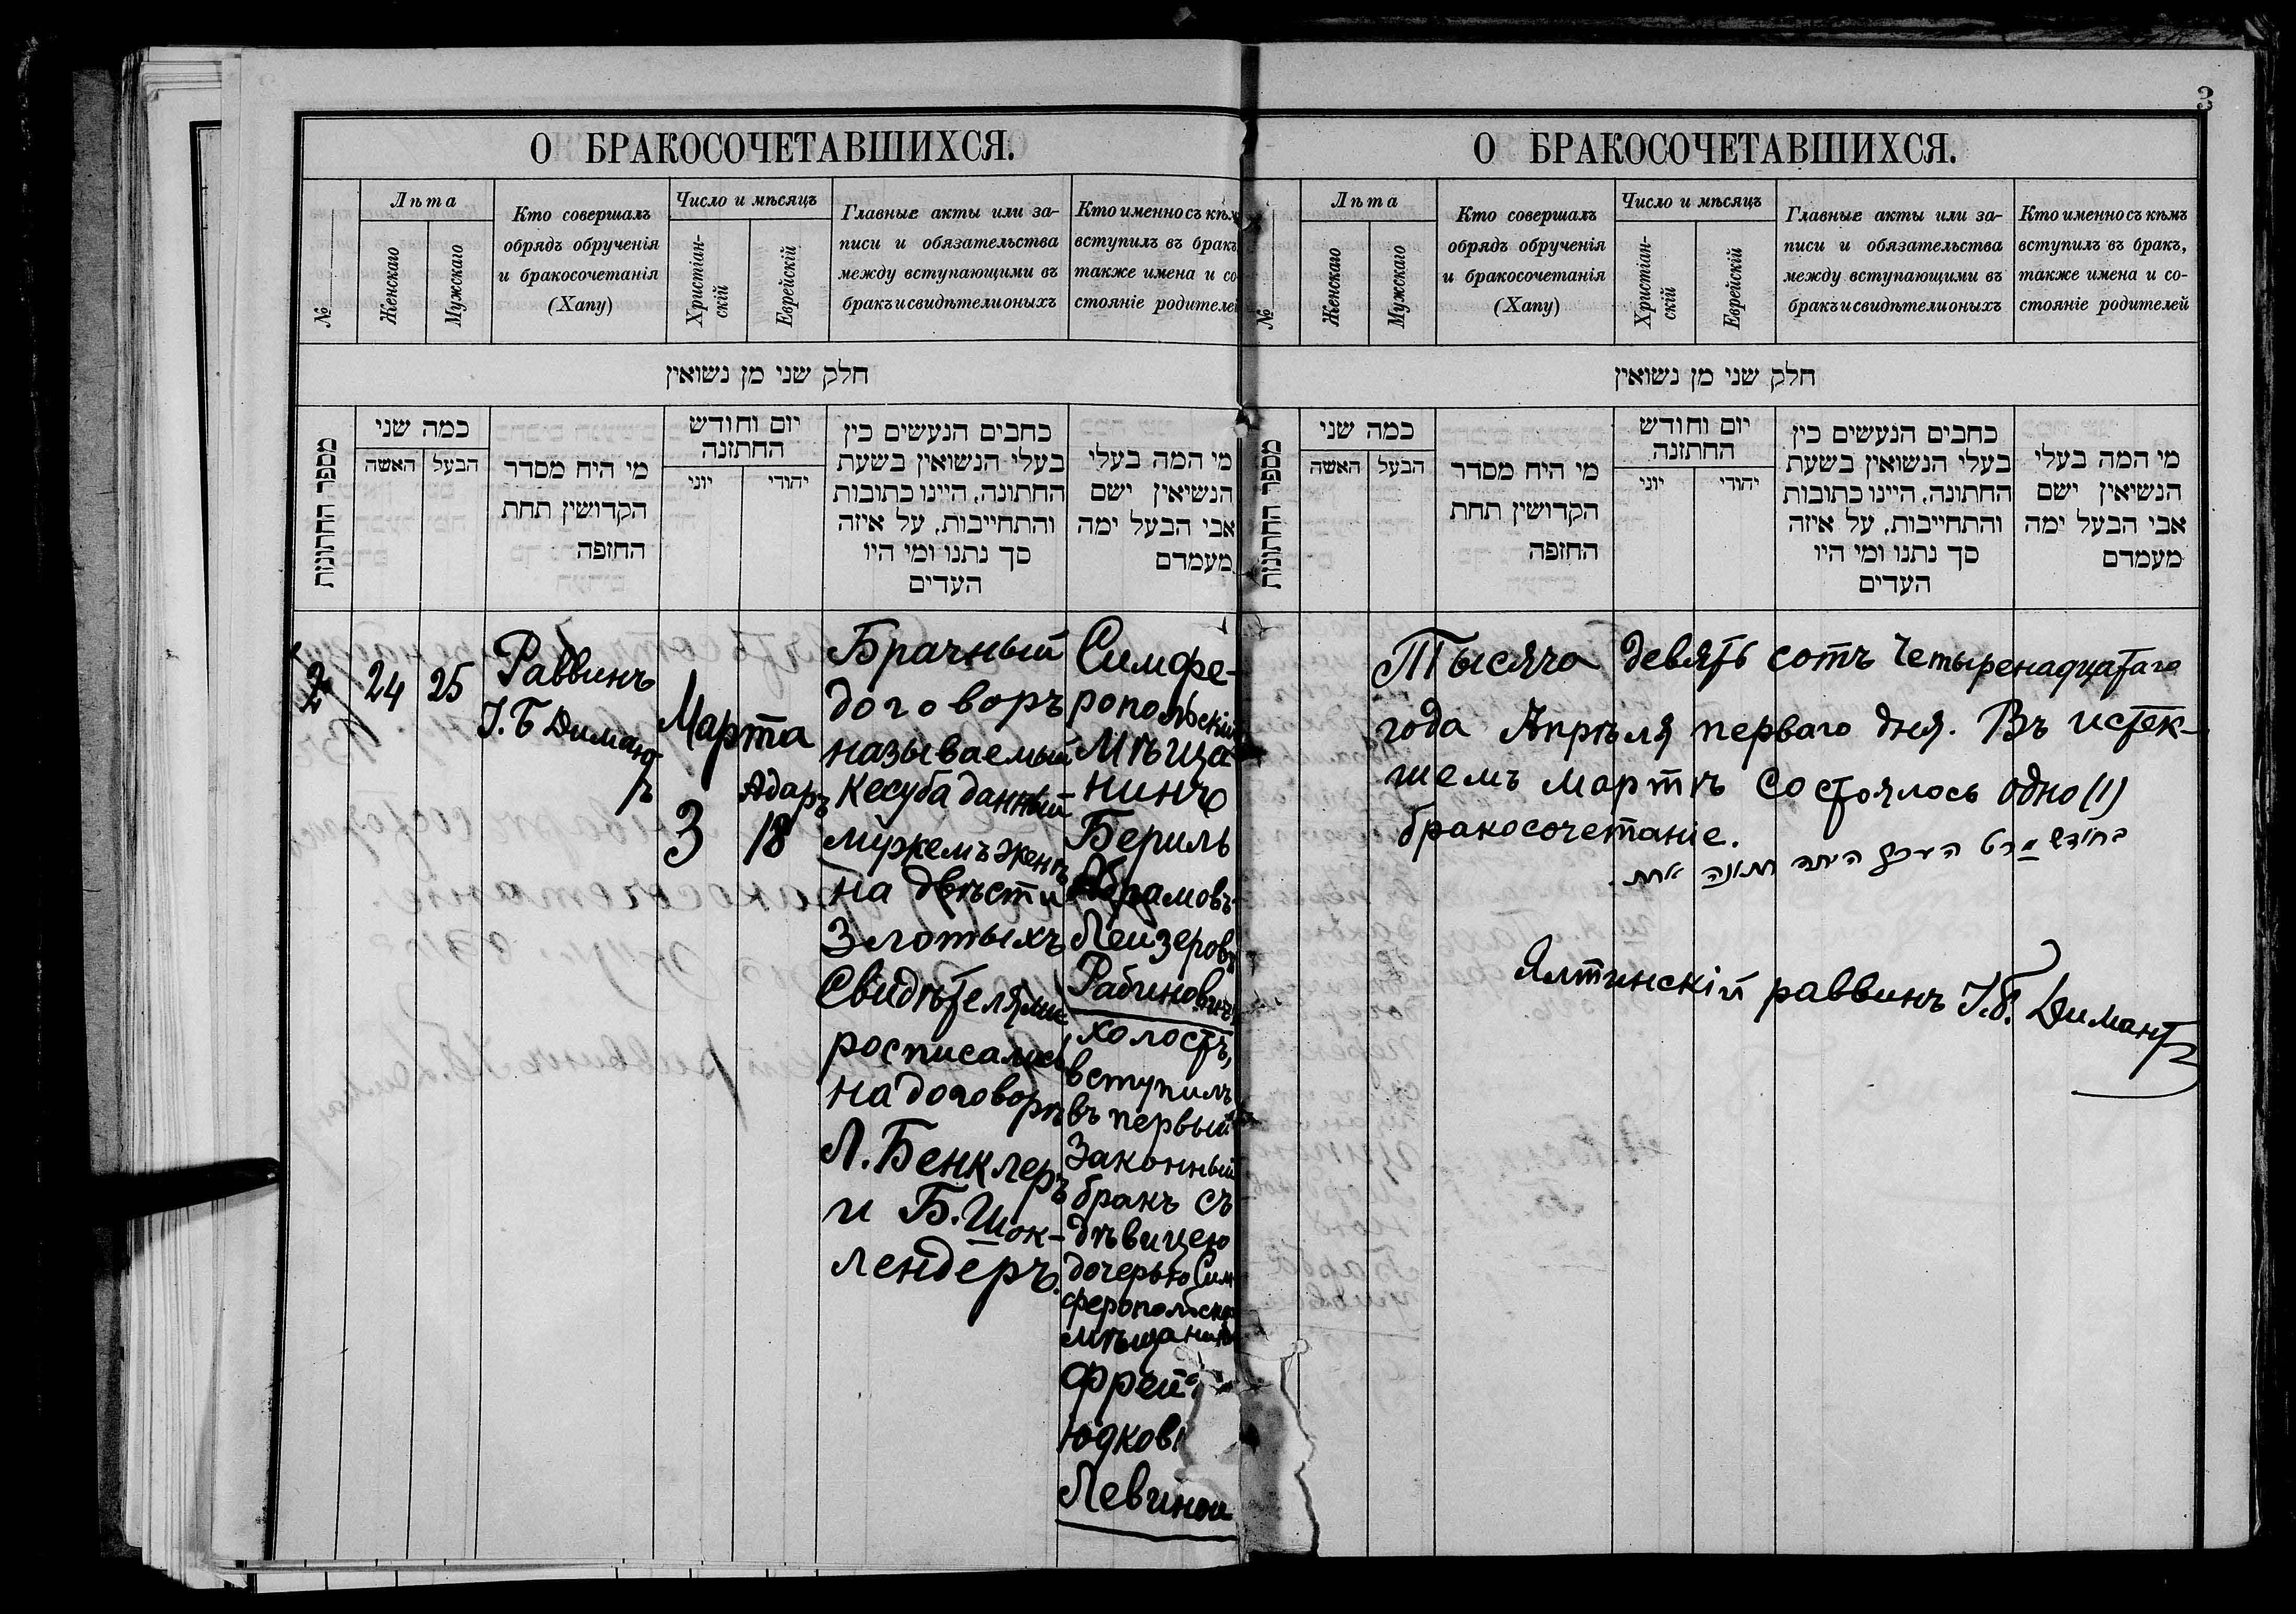 3
О БРАКОСОЧЕТАВШИХСЯ.
№
Лѣта
Женскаго
Мужскаго
Кто совершалъ
обрядъ обрученія
и бракосочетанія
(Хапу)
Число и мѣсяцъ
Христіан-
скій
Еврейскій
Главные акты или за-
писи и обязательства
между вступающими въ
бракъ и свидѣтели оныхъ
Кто именно съ кѣмъ
вступилъ въ бракъ
также имена и со
стояніе родителей
חלק שני מן נשואין
מספר החתונות
כמה שני
האשה
הבעל
מי היח מסדר
הקדושין תחת
החופה
יום וחודש
החתונה
יוני
יהודי
כתבים הנעשים בין
בעלי הנשואין בשעת
החתונה, היינו כתובות
והתחייבות, על איזה
סך נתנו ומי היו
העדים
מי המה בעלי
הנשיאין ישם
אבי הבעל ימה
מעמדם
2
24
25
Раввинъ
І. Б Димант
ъ
Марта
3
Адаръ
18
Брачный
договоръ
называемый
Кесуба данный
мужемъ женѣ
на двѣсти
Злотыхъ
Свидѣтелями
росписались
на договорѣ
Л. Бенклеръ
и Б. Шок-
лендеръ.
Симфе-
ропольскій
Мѣща
нинъ
Бериль
Абрамовъ
Лейзеровъ
Рабиновичъ
холостъ,
вступилъ
въ первый
Законный
бракъ съ
дѣвицею
дочерью Сим
феропольска
мѣщанина
Фрей
Юдков
Левиной
О БРАКОСОЧЕТАВШИХСЯ.
№
Лѣта
Женскаго
Мужскаго
Кто совершалъ
обрядъ обрученія
и бракосочетанія
(Хапу)
Число и мѣсяцъ
Христіан-
скій
Еврейскій
Главные акты или за-
писи и обязательства
между вступающими въ
бракъ и свидѣтели оныхъ
Кто именно съ кѣмъ
вступилъ въ бракъ,
также имена и со-
стояніе родителей
חלק שני מן נשואין
מספר החתונות
כמה שני
האשה
הבעל
מי היח מסדר
הקדושין תחת
החופה
יום וחודש
החתונה
יוני
יהודי
כתבים הנעשים בין
בעלי הנשואין בשעת
החתונה, היינו כתובות
והתחייבות, על איזה
סך נתנו ומי היו
העדים
מי המה בעלי
הנשיאין ישם
אבי הבעל ימה
מעמדם
Тысяча девять сотъ четыренадцатаго
года Апрѣля перваго дня. Въ истек-
шемъ мартѣ состоялось одно (1)
бракосочетаніе.
Ялтинскій раввинъ І. Б. Димантъ